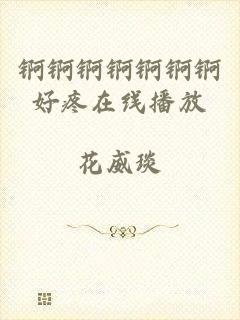 锕锕锕锕锕锕锕
好疼在线播放
花威琰